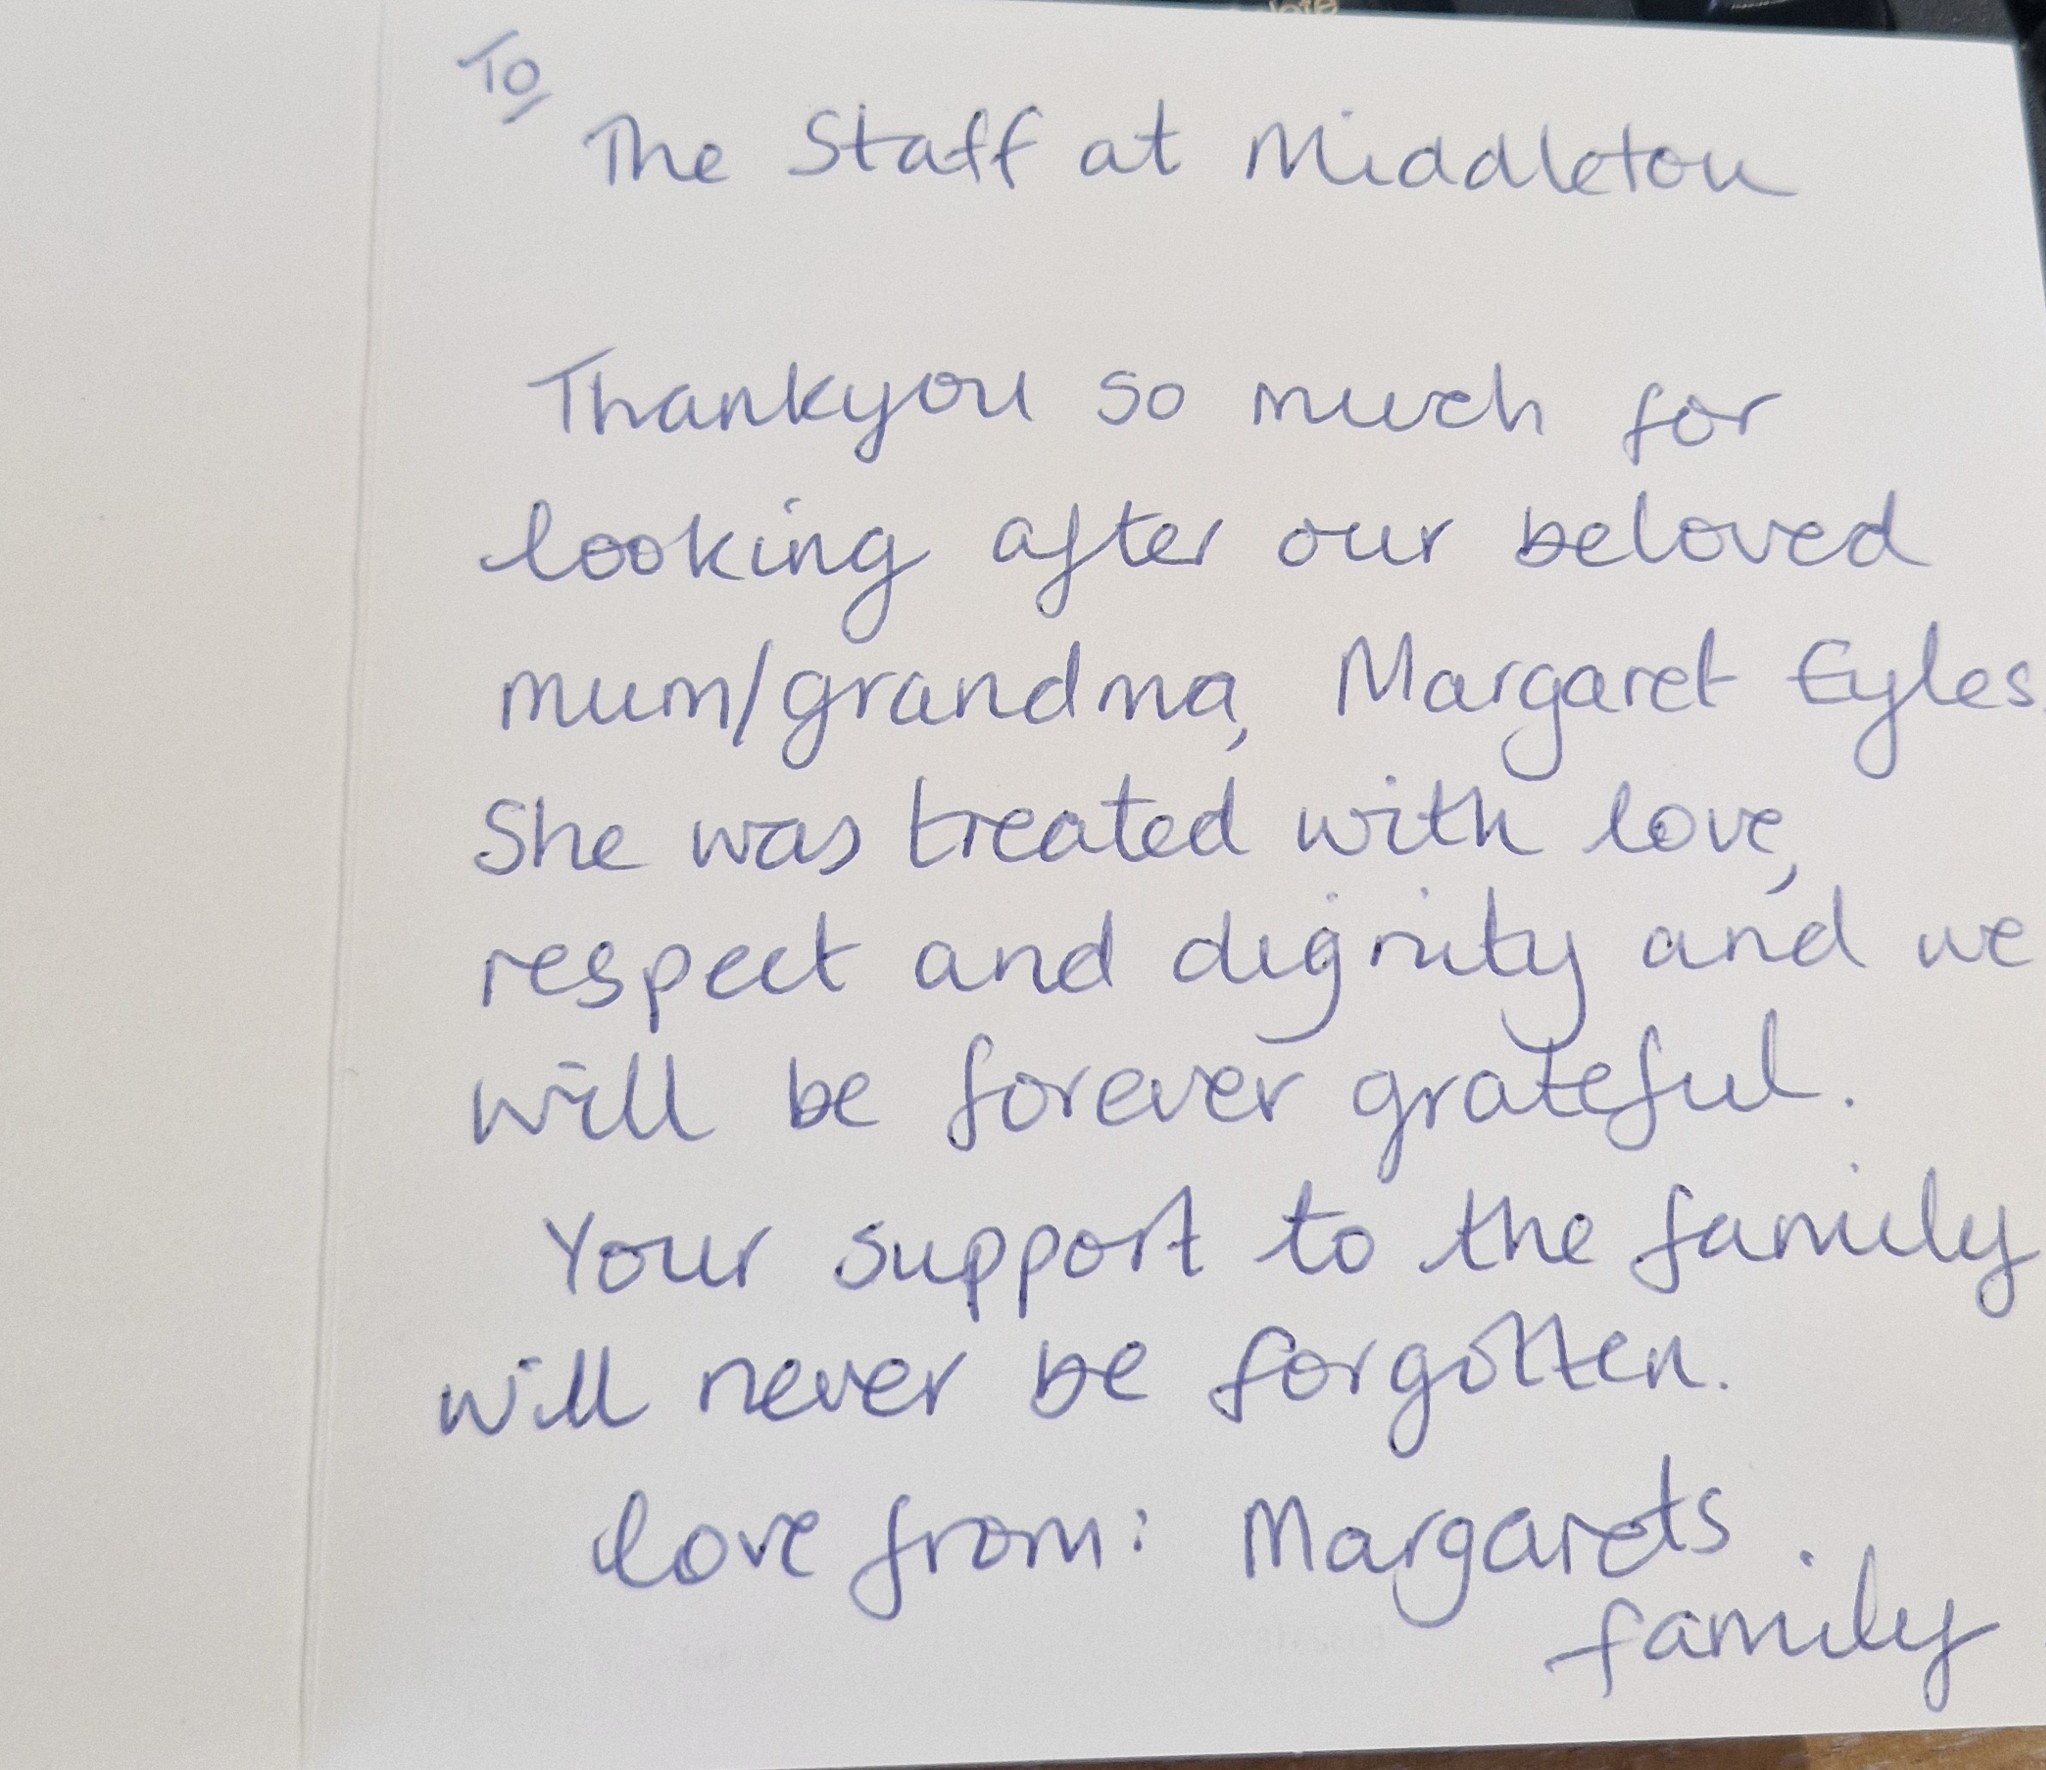 To
The Staff at Middleton
Thankyou so much for
looking after our beloved
mum/grandma, Margaret Eyles.
She was treated with love,
respect and dignity and we
will be forever grateful.
Your support to the family
will never be forgotten.
love from: Margarets
family